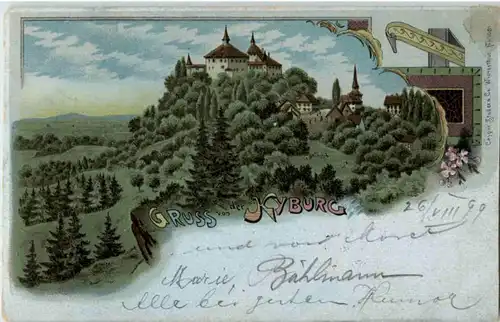 GRUSS von der KYBURG
26/VIII 99
und von Moret
Marie Bählmann
Alle bei gutem Humor